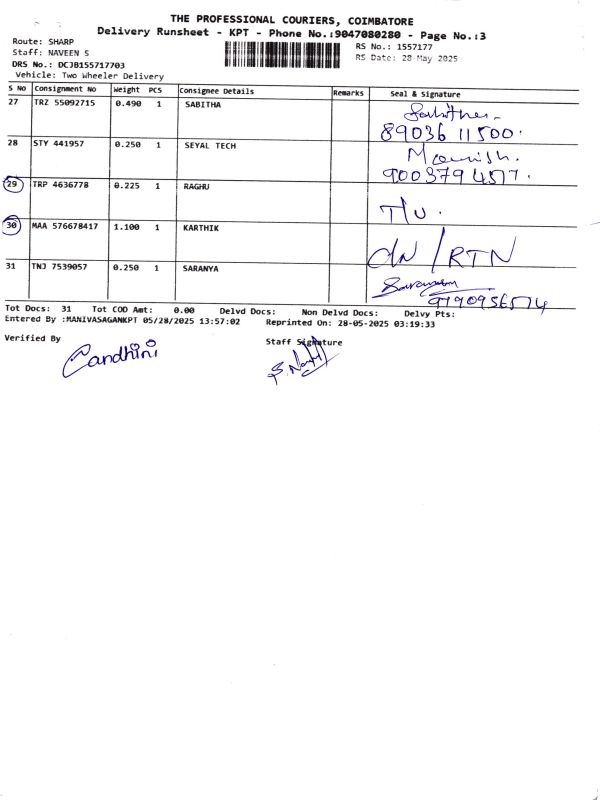 THE PROFESSIONAL COURIERS, COIMBATORE
Delivery Runsheet - KPT - Phone No.:9047080280 - Page No.:3
Route: SHARP
Staff: NAVEEN S
DRS No.: DCJB155717703
Vehicle: Two Wheeler Delivery
RS No.: 1557177
RS Date: 28-May 2025
S No Consignment No Weight PCS Consignee Details Remarks Seal & Signature
27 TRZ 55092715 0.490 1 SABITHA Sabitha
89036 11500.
28 STY 441957 0.250 1 SEYAL TECH
9003794517.
29 TRP 4636778 0.225 1 RAGHU
30 MAA 576678417 1.100 1 KARTHIK /RTN
31 TNJ 7539057 0.250 1 SARANYA
9790956574
Tot Docs: 31 Tot COD Amt: 0.00 Delvd Docs: Non Delvd Docs: Delvy Pts:
Entered By :MANIVASAGANKPT 05/28/2025 13:57:02 Reprinted On: 28-05-2025 03:19:33
Verified By Staff Signature
Gandhini